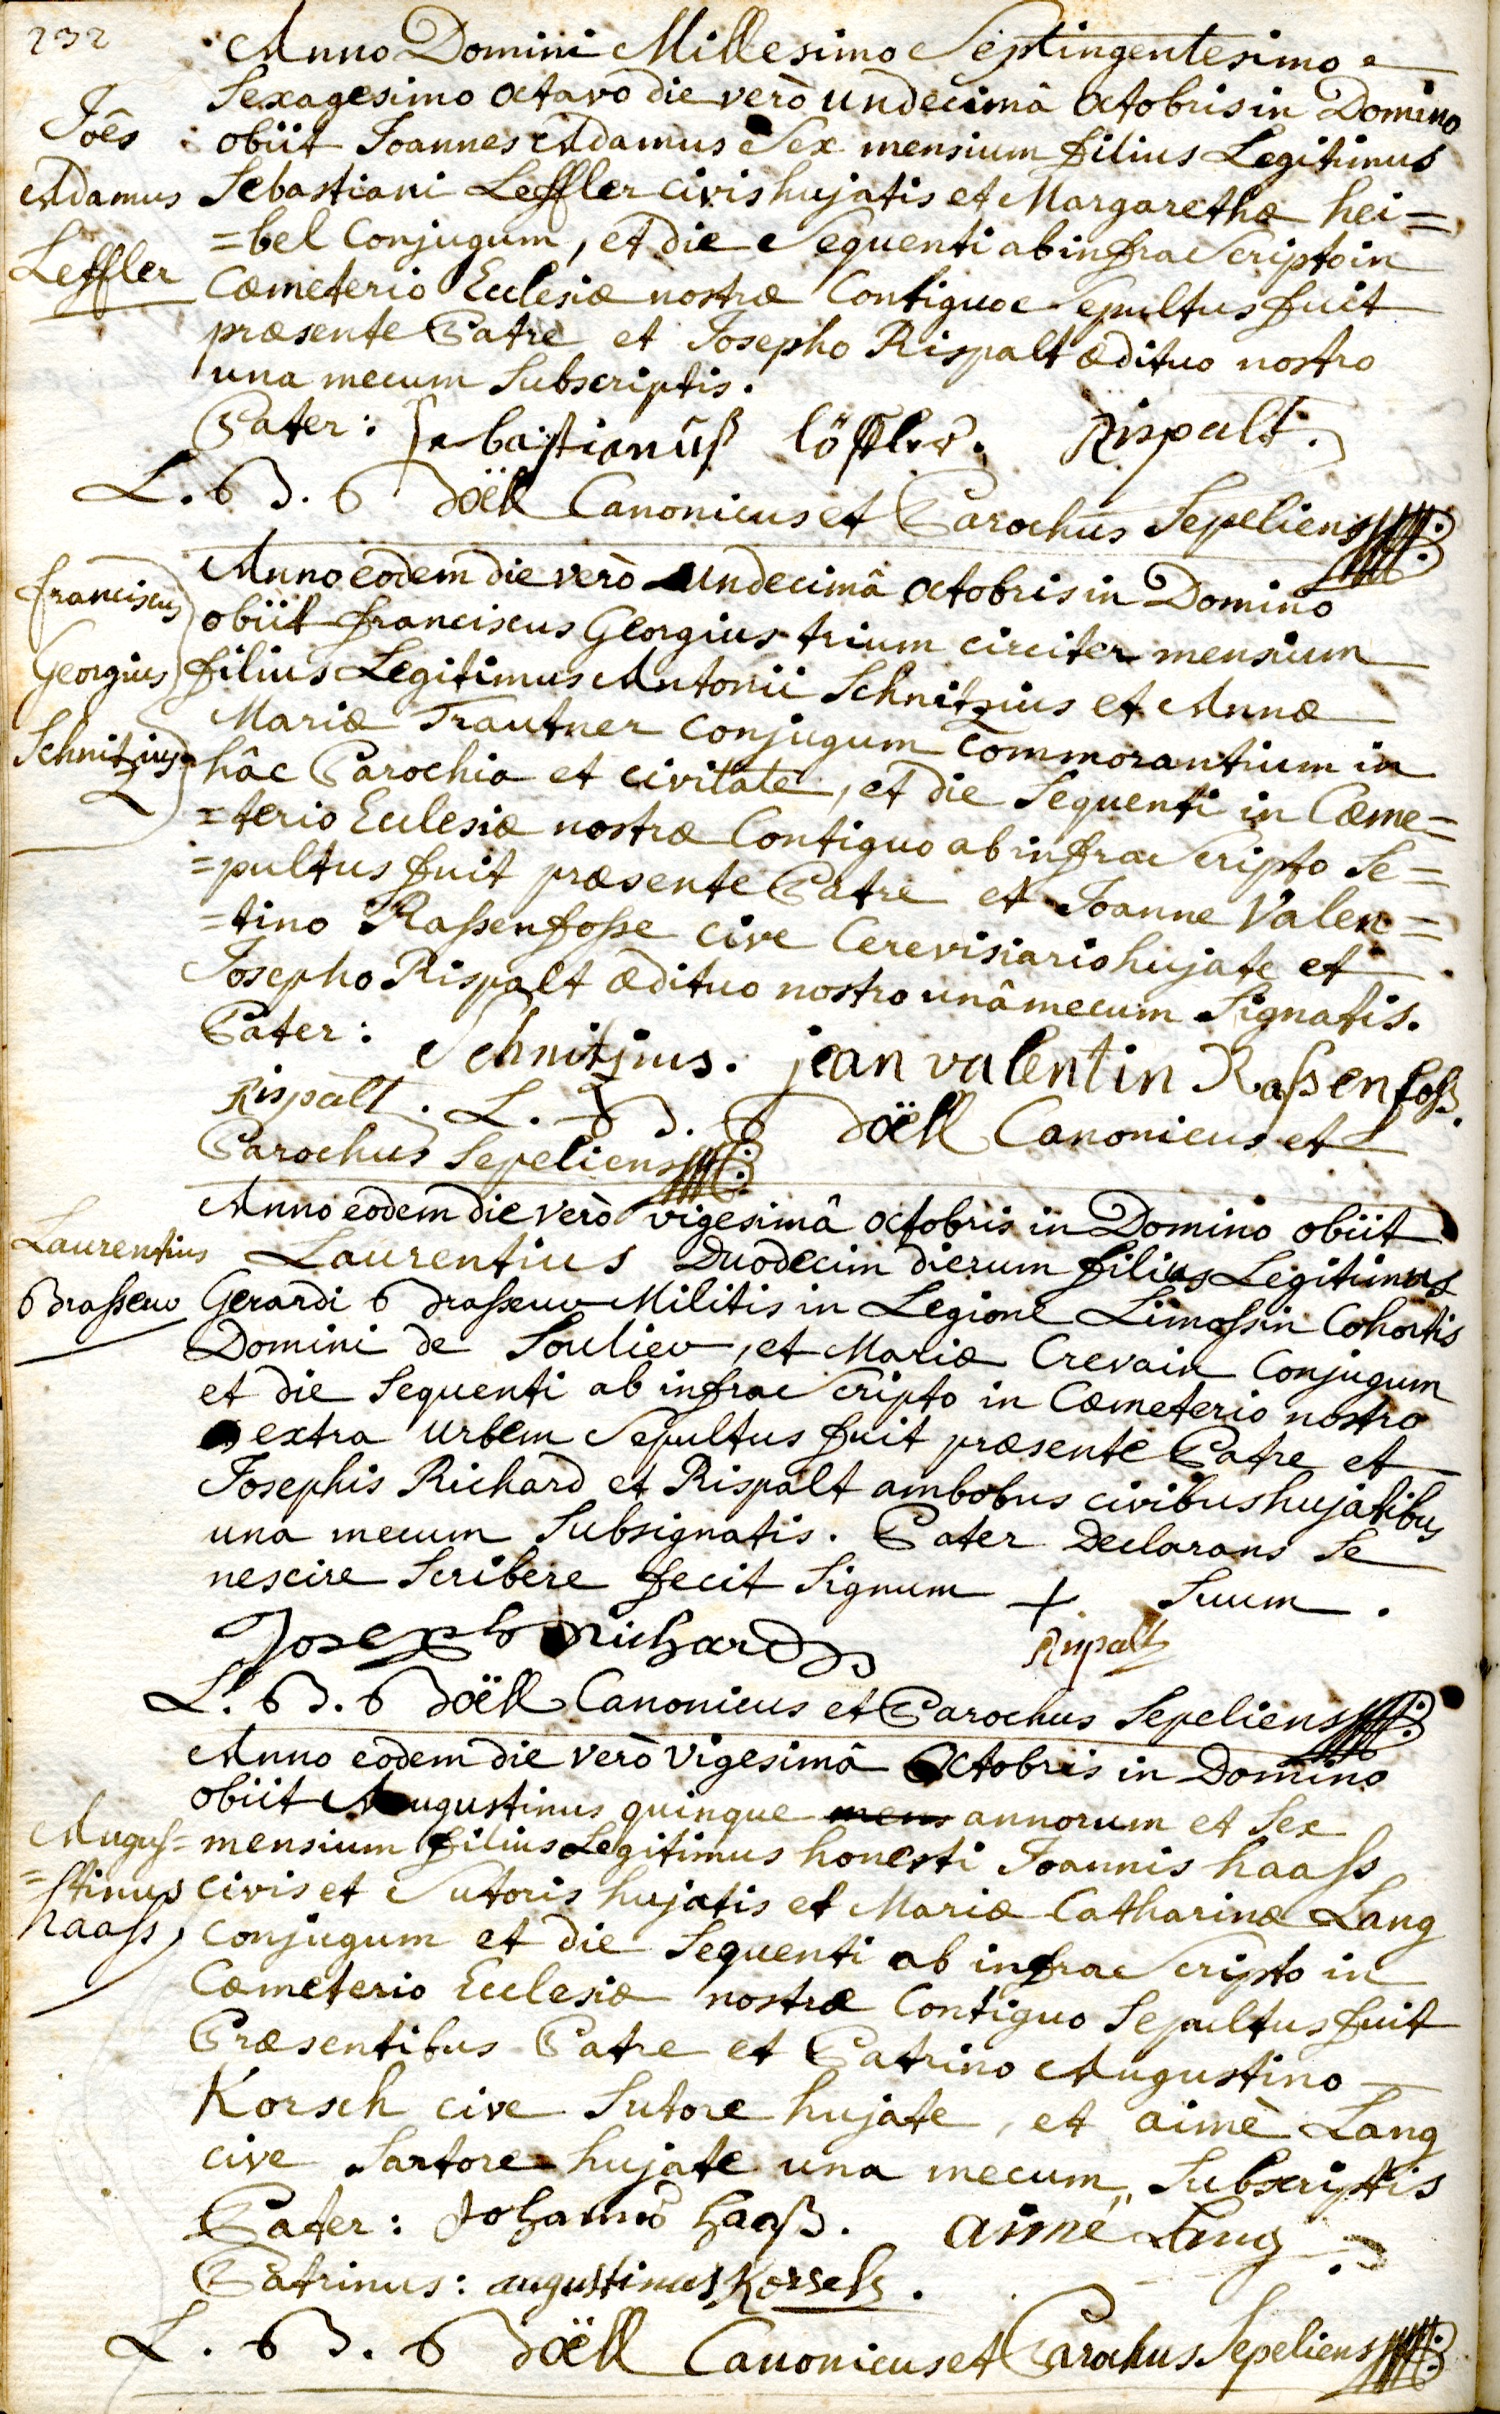 232
Anno Domini Millesimo Septingentesimo
Sexagesimo octavo die verò undecimâ octobris in Domino
Joês
obiit Joannes Adamus Sex mensium filius Legitimus
Adamus
Sebastiani Leffler civis hujatis et Margarethæ hei=
Leffler
=bel Conjugum, et die Sequenti ab infra Scripto in
Cæmeterio Ecclesiæ nostræ Contiguo Sepultus fuit
præsente Patre et Josepho Rispalt ædituo nostro
una mecum Subscriptis.
Pater: Sebastianuß löffler. Rispalt.
L. B. Boëll Canonicus et Parochus Sepeliens
Anno eodem die verò undecimâ octobris in Domino
franciscus
obiit franciscus Georgius trium circiter mensium
Georgius
filius Legitimus Antonii Schnitzius et Annæ
Schnitzius
Mariæ Trautner Conjugum Commorantium in
hâc Parochia et civitate, et die Sequenti in Cæme=
=terio Ecclesiæ nostræ Contiguo ab infra Scripto Se=
=pultus fuit præsente Patre et Joanne Valen=
=tino Raßenfoße cive Cerevisiario hujate et
Josepho Rispalt ædituo nostro unâ mecum Signatis.
Pater: Schnitzius. jean valentin Raßenfoß.
Rispalt. L. B. Boëll Canonicus et
Parochus Sepeliens
Anno eodem die verò vigesimâ octobris in Domino obiit
Laurentius
Laurentius Duodecim dierum filius Legitimus
Braßeur
Gerardi Braßeur Militis in Legione Limoßin Cohortis
Domini de Soulieu, et Mariæ Crevain Conjugum
et die Sequenti ab infra Scripto in Cæmeterio nostro
extra Urbem Sepultus fuit præsente Patre et
Josephis Richard et Rispalt ambobus civibus hujatibus
una mecum Subsignatis. Pater Declarans Se
nescire Scribere fecit Signum + Suum.
Joseph Richard Rispalt
L. B. Boëll Canonicus et Parochus Sepeliens
Anno eodem die verò vigesimâ Octobris in Domino
obiit Augustinus quinque mens annorum et Sex
Augus=
mensium filius Legitimus honesti Joannis haaß
=stinus
civis et Sutoris hujatis et Mariæ Catharinæ Lang
haaß
conjugum et die Sequenti ab infra Scripto in
Cæmeterio Ecclesiæ nostræ Contiguo Sepultus fuit
Præsentibus Patre et Patrino Augustino
Korsch cive Sutore hujate, et aimè Lang
cive Sartore hujate una mecum Subscriptis
Pater: Johannes haaß. aimé Lang
Patrinus: augustinus Korsch.
L. B. Boëll Canonicus et Parochus Sepeliens